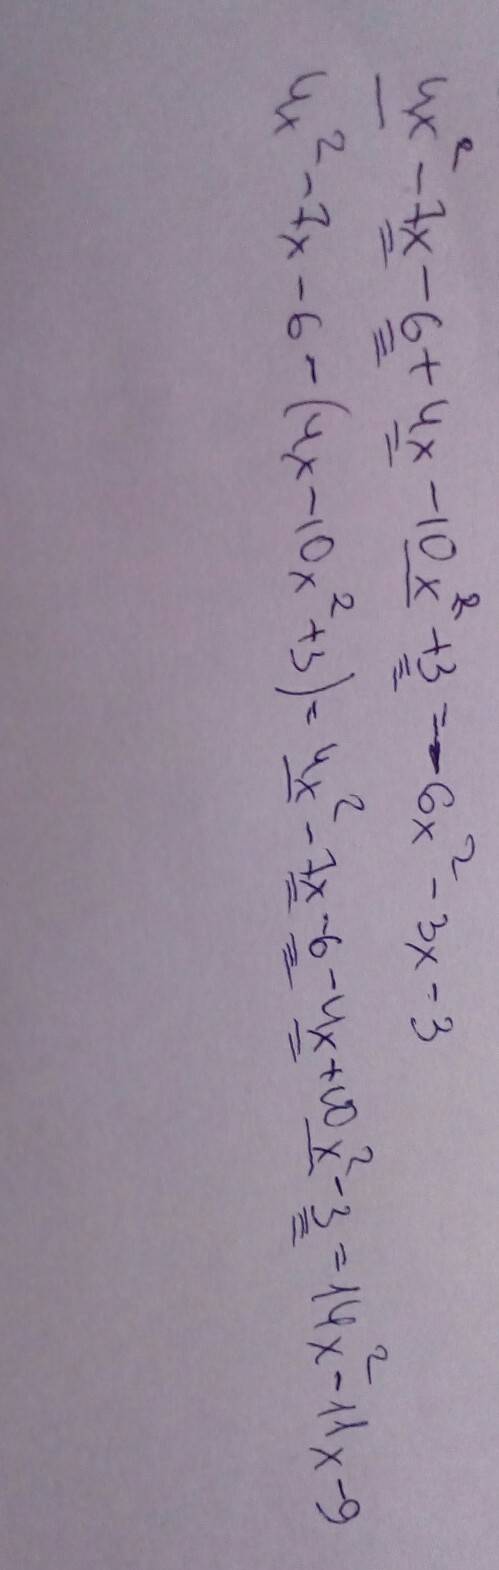 4x² - 7x - 6 + 4x - 10x² + 3 = -6x² - 3x - 3
4x² - 7x - 6 - (4x - 10x² + 3) = 4x² - 7x - 6 - 4x + 10x² - 3 = 14x² - 11x - 9